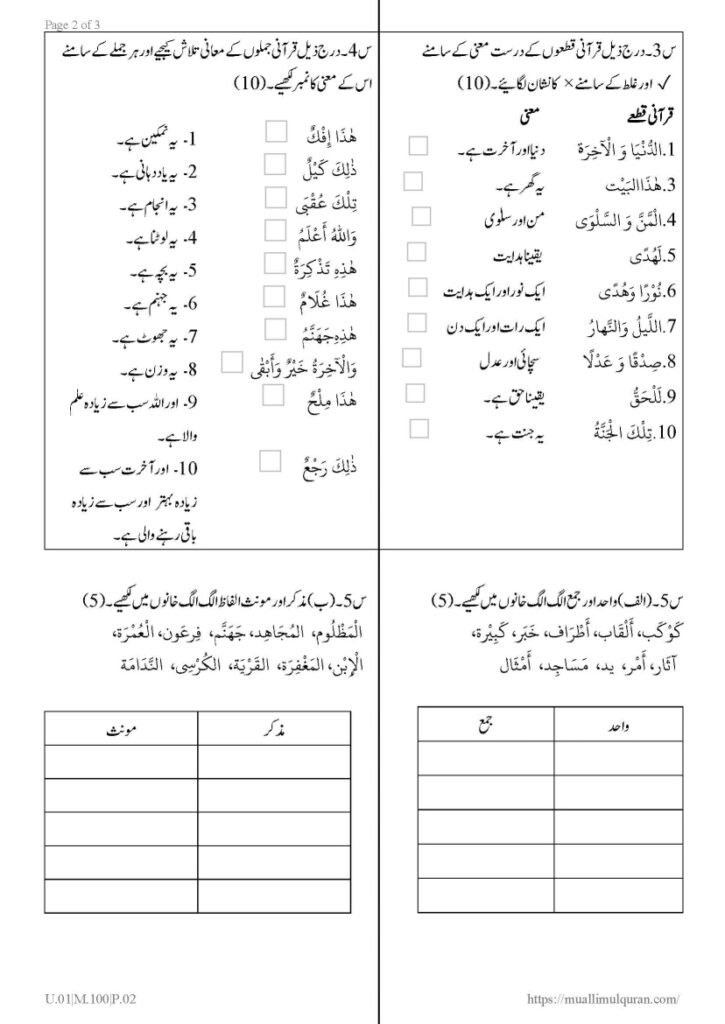 Page 2 of 3
س3۔ درج ذیل قرآنی قطعوں کے درست معنی کے سامنے
✓ اور غلط کے سامنے × کا نشان لگائیے۔ (10)
قرآنی قطعے معنی
1.الدُّنْيَا وَ الْآخِرَة دنیا اور آخرت ہے۔
3.هٰذَاالبَيْت یہ گھر ہے۔
4.الْمَنَّ وَ السَّلْوَى من اور سلوٰی
5.لَهُدًى یقینا ہدایت
6.نُوْرًا وَهُدًى ایک نور اور ایک ہدایت
7.اللَّيلُ وَالنَّهارُ ایک رات اور ایک دن
8.صِدْقًا وَ عَدْلًا سچائی اور عدل
9.لَلْحَقُّ یقینا حق ہے۔
10.تِلْكَ الْجَنَّةُ یہ جنت ہے۔
س4۔ درج ذیل قرآنی جملوں کے معانی تلاش کیجیے اور ہر جملے کے سامنے
اس کے معنی کا نمبر لکھیے۔ (10)
هٰذَا إِفْكٌ 1- یہ نمکین ہے۔
ذٰلِكَ كَيْلٌ 2- یہ یاد دہانی ہے۔
تِلْكَ عُقْبَى 3- یہ انجام ہے۔
وَاللهُ أَعْلَمُ 4- یہ لوٹنا ہے۔
هٰذِهِ تَذْكِرَةٌ 5- یہ بچہ ہے۔
هٰذَا غُلَامٌ 6- یہ جہنم ہے۔
هٰذِهِ جَهَنَّمُ 7- یہ جھوٹ ہے۔
وَالْآخِرَةُ خَيْرٌ وَأَبْقٰى 8- یہ وزن ہے۔
هٰذَا مِلْحٌ 9- اور اللہ سب سے زیادہ علم
والا ہے۔
ذٰلِكَ رَجْعٌ 10- اور آخرت سب سے
زیادہ بہتر اور سب سے زیادہ
باقی رہنے والی ہے۔
س5۔ (الف) واحد اور جمع الگ الگ خانوں میں لکھیے۔ (5)
كَوْكَب، أَلْقَاب، أَطْرَاف، خَبَر، كَبِيْرة،
آثَار، أَمْر، يد، مَسَاجِد، أَمْثَال
واحد جمع
س5۔ (ب) مذکر اور مونث الفاظ الگ الگ خانوں میں لکھیے۔ (5)
الْمَظْلُوم، المُجَاهِد، جَهَنَّم، فِرعَون، الْعُمْرَة،
الْإِبْن، المَغْفِرَة، القَرْيَة، الكُرْسِى، النَّدَامَة
مذکر مونث
U.01|M.100|P.02
https://muallimulquran.com/